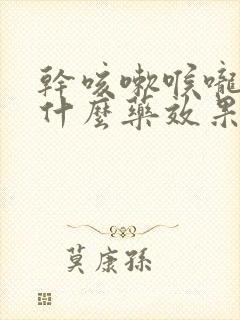 幹咳嗽喉嚨
什麼藥效果
莫康孫